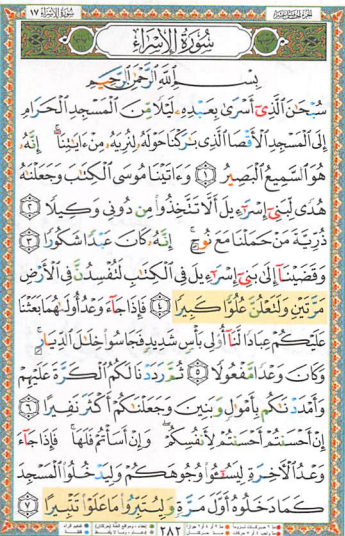 سُورَةُ الإِسْرَاءِ ١٧
سُورَةُ الإِسْرَاءِ
بِسْمِ ٱللَّهِ ٱلرَّحْمَٰنِ ٱلرَّحِيمِ
سُبْحَٰنَ ٱلَّذِىٓ أَسْرَىٰ بِعَبْدِهِۦ لَيْلًا مِّنَ ٱلْمَسْجِدِ ٱلْحَرَامِ
إِلَى ٱلْمَسْجِدِ ٱلْأَقْصَا ٱلَّذِى بَٰرَكْنَا حَوْلَهُۥ لِنُرِيَهُۥ مِنْ ءَايَٰتِنَآ ۚ إِنَّهُۥ
هُوَ ٱلسَّمِيعُ ٱلْبَصِيرُ ١ وَءَاتَيْنَا مُوسَى ٱلْكِتَٰبَ وَجَعَلْنَٰهُ
هُدًى لِّبَنِىٓ إِسْرَٰٓءِيلَ أَلَّا تَتَّخِذُوا۟ مِن دُونِى وَكِيلًا ٢
ذُرِّيَّةَ مَنْ حَمَلْنَا مَعَ نُوحٍ ۚ إِنَّهُۥ كَانَ عَبْدًا شَكُورًا ٣
وَقَضَيْنَآ إِلَىٰ بَنِىٓ إِسْرَٰٓءِيلَ فِى ٱلْكِتَٰبِ لَتُفْسِدُنَّ فِى ٱلْأَرْضِ
مَرَّتَيْنِ وَلَتَعْلُنَّ عُلُوًّا كَبِيرًا ٤ فَإِذَا جَآءَ وَعْدُ أُولَىٰهُمَا بَعَثْنَا
عَلَيْكُمْ عِبَادًا لَّنَآ أُو۟لِى بَأْسٍ شَدِيدٍ فَجَاسُوا۟ خِلَٰلَ ٱلدِّيَارِ ۚ
وَكَانَ وَعْدًا مَّفْعُولًا ٥ ثُمَّ رَدَدْنَا لَكُمُ ٱلْكَرَّةَ عَلَيْهِمْ
وَأَمْدَدْنَٰكُم بِأَمْوَٰلٍ وَبَنِينَ وَجَعَلْنَٰكُمْ أَكْثَرَ نَفِيرًا ٦
إِنْ أَحْسَنتُمْ أَحْسَنتُمْ لِأَنفُسِكُمْ ۖ وَإِنْ أَسَأْتُمْ فَلَهَا ۚ فَإِذَا جَآءَ
وَعْدُ ٱلْءَاخِرَةِ لِيَسُۥٓـُٔوا۟ وُجُوهَكُمْ وَلِيَدْخُلُوا۟ ٱلْمَسْجِدَ
كَمَا دَخَلُوهُ أَوَّلَ مَرَّةٍ وَلِيُتَبِّرُوا۟ مَا عَلَوْا۟ تَتْبِيرًا ٧
٢٨٢